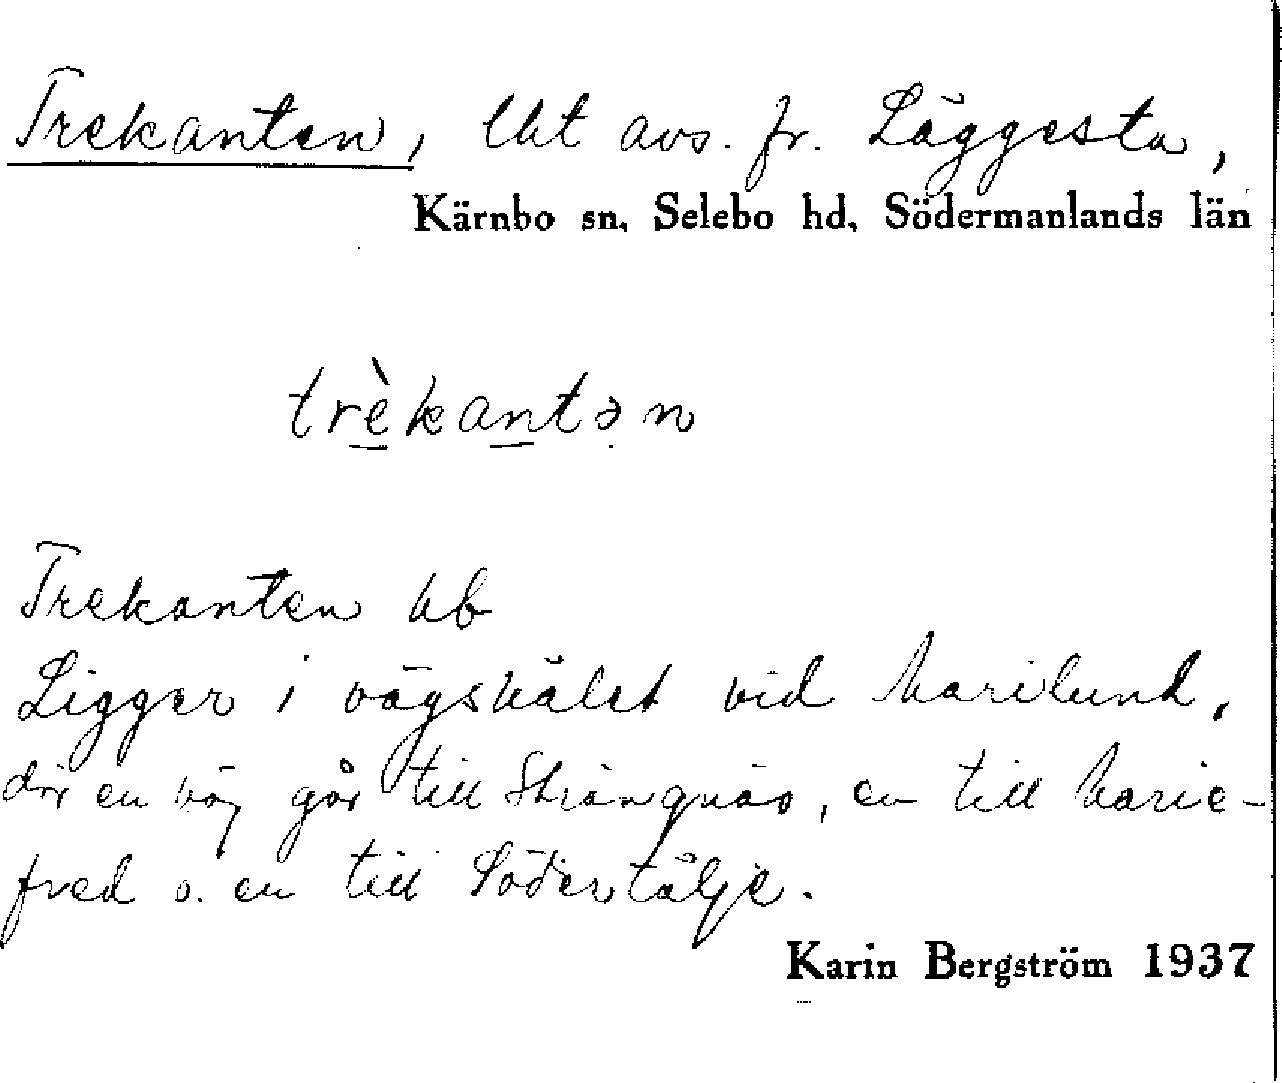 Trekanten, lht avs. fr. Läggesta,
Kärnbo sn, Selebo hd, Södermanlands län
trèkantən
Trekanten hb
Ligger i vägskälet vid Marilund,
där en väg går till Strängnäs, en till Marie-
fred o. en till Södertälje.
Karin Bergström 1937